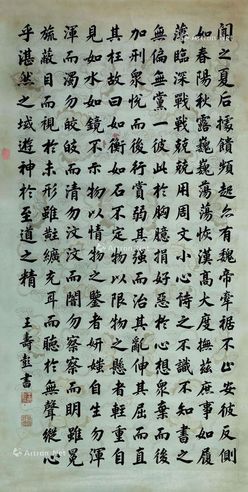 聞之夏后據饋頻起亦有魏帝牽裾不止安彼反側
如春陽秋露巍巍蕩蕩恢漢高大度撫茲庶事如履
薄臨深戰戰兢兢用周文小心詩之不識不知書之
無偏無黨一彼此於胸臆捐好惡於心想衆棄而後
加刑衆悅而後行賞弱其强而治其亂伸其屈而直
其枉故曰如衡如石不定物以限物之懸者輕重自
見如水如鏡不示物以情物之鑒者妍媸自生勿渾
渾而濁勿皎皎而清勿汶汶而闇勿察察而明雖冕
旒蔽目而視於未形雖黈纊充耳而聽於無聲縱心
乎湛然之域遊神於至道之精
王壽彭書